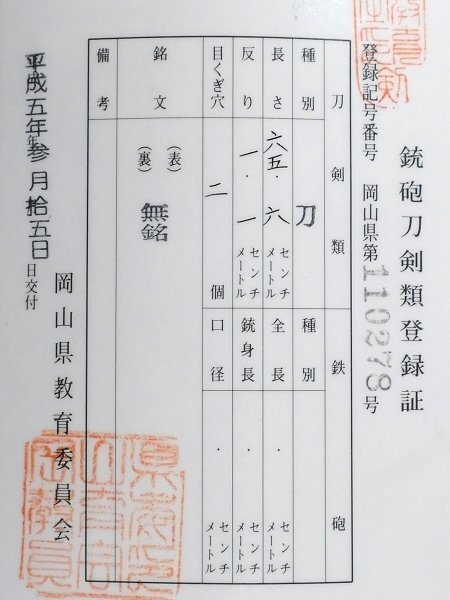 銃砲刀剣類登録証
登録記号番号 岡山県第110278号
刀剣類
種別 刀
長さ 六五・六 センチメートル
反り 一・一 センチメートル
目くぎ穴 二 個
銘文 (表) (裏) 無銘
備考
鉄砲
種別
全長 ・ センチメートル
銃身長 ・ センチメートル
口径 ・ センチメートル
平成五年年参月拾五日日交付
岡山県教育委員会